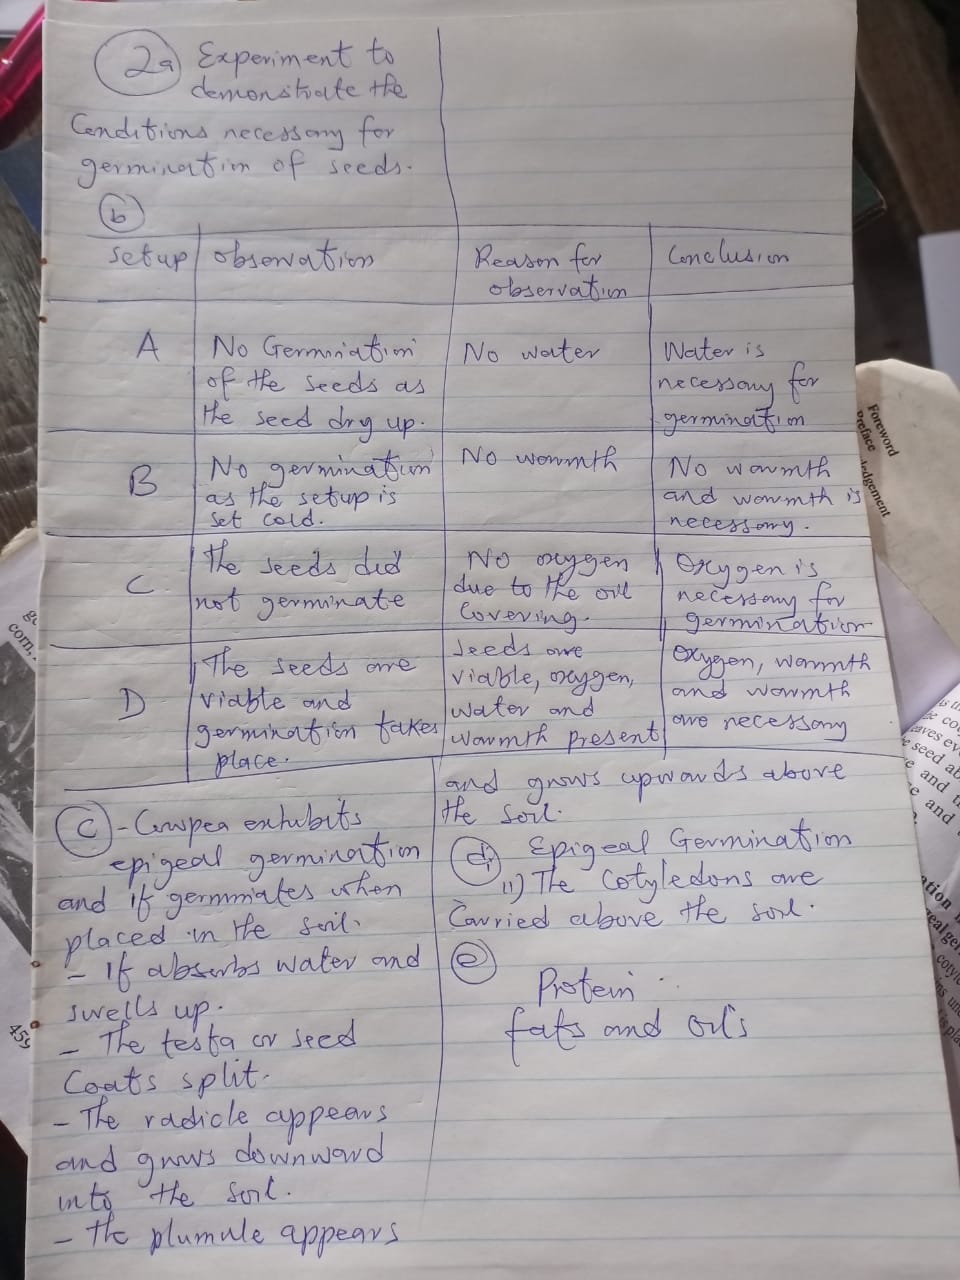 2a Experiment to
demonstrate the
Conditions necessary for
germination of seeds.
b
Setup observation Reason for observation Conclusion
A No Germination of the seeds as the seed dry up. No water Water is necessary for germination
B No germination as the setup is set cold. No warmth No warmth and warmth is necessary.
C The seeds did not germinate No oxygen due to the oil covering. Oxygen is necessary for germination
D The seeds are viable and germination takes place. Seeds are viable, oxygen, water and warmth present Oxygen, warmth and warmth are necessary
c - Cowpea exhibits
epigeal germination
and if germinates when
placed in the soil.
- If absorbs water and
swells up.
- The testa or seed
Coats split.
- The radicle appears
and grows downward
into the soil.
- the plumule appears
and grows upwards above
the soil.
di) Epigeal Germination
ii) The Cotyledons are
Carried above the soil.
e
Protein
fats and oils
Foreword
Preface
459
corn,
seed
and
and